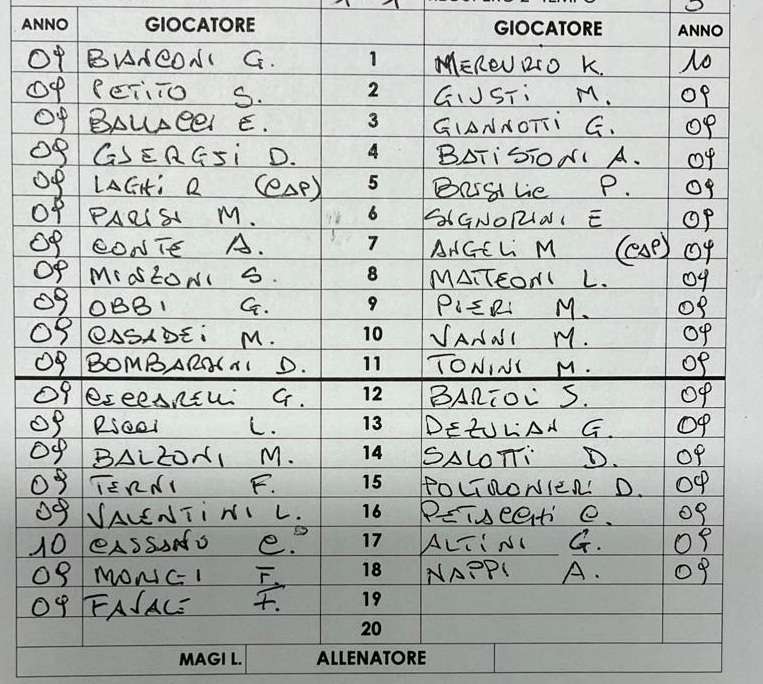 ANNO GIOCATORE GIOCATORE ANNO
09 BIANCONI G. 1 MERCURIO K. 10
09 PETITO S. 2 GIUSTI M. 09
09 BALLACCI E. 3 GIANNOTTI G. 09
09 GJERGJI D. 4 BATISTONI A. 09
09 LAGHI R (CAP) 5 BRISILIC P. 09
09 PARISI M. 6 SIGNORINI E 09
09 CONTE A. 7 ANGELI M (CAP) 09
09 MINZONI S. 8 MATTEONI L. 09
09 OBBI G. 9 PIERI M. 09
09 CASADEI M. 10 VANNI M. 09
09 BOMBARDINI D. 11 TONINI M. 09
09 CECCARELLI G. 12 BARTOLI S. 09
09 RICCI L. 13 DEZULIAN G. 09
09 BALZONI M. 14 SALOTTI D. 09
09 TERNI F. 15 POLTRONIERI D. 09
09 VALENTINI L. 16 PETACCHI C. 09
10 CASSANO C. 17 ALTINI G. 09
09 MONGI F. 18 NAPPI A. 09
09 FAVALE F. 19
20
MAGI L. ALLENATORE